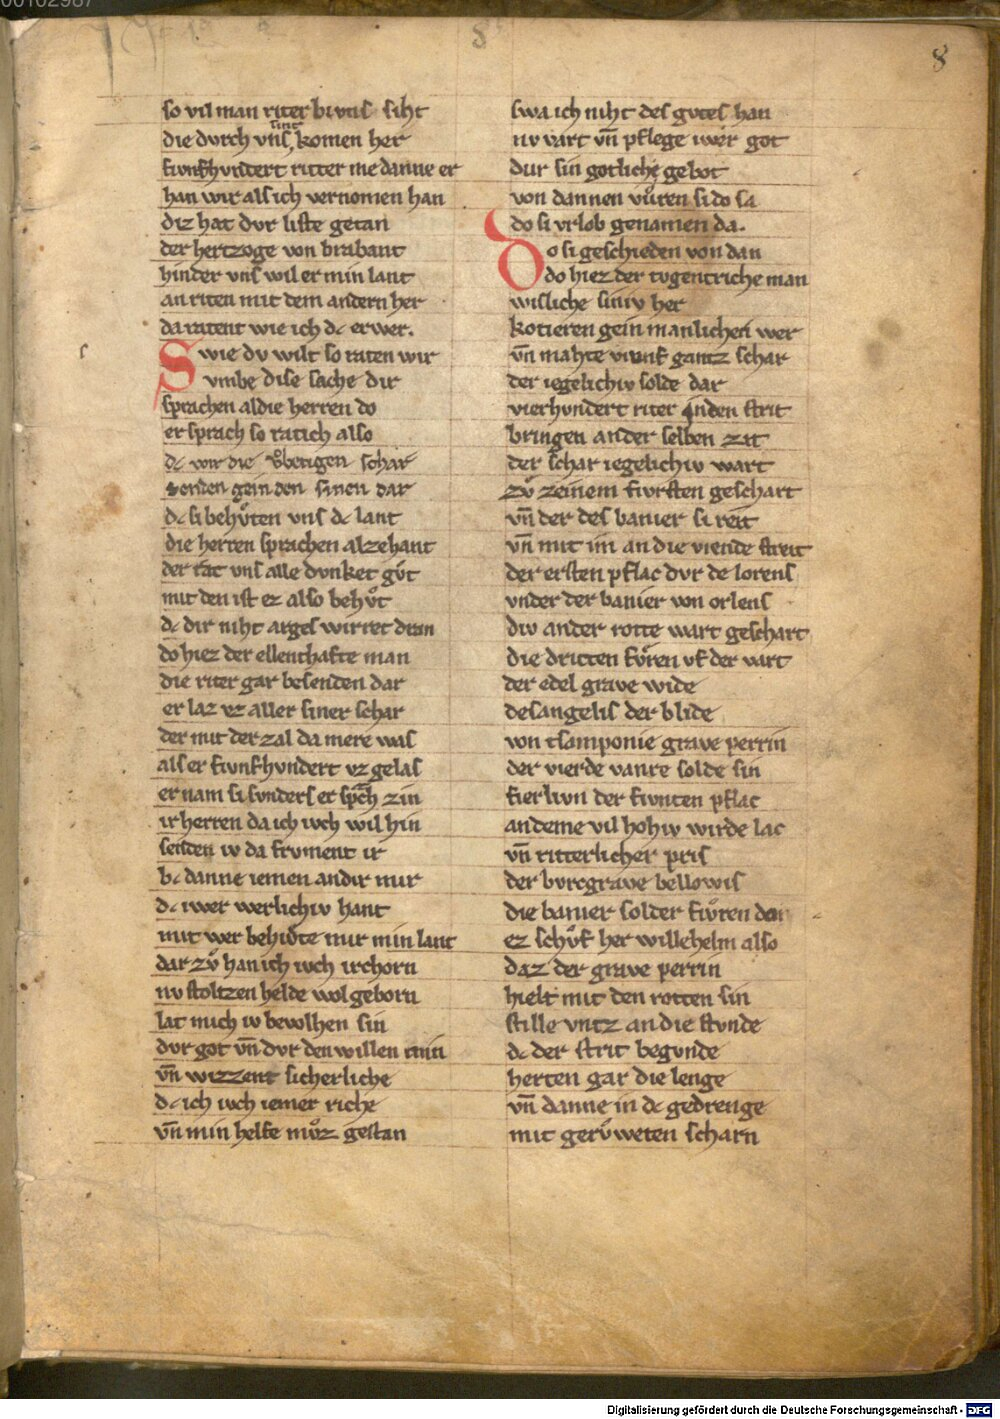 00102987
8
8
so vil man riter bi vns siht
die dvrch vns sint komen her
fivnfhvndert ritter me danne er
han wir als ich vernomen han
diz hat dvr liste getan
der hertzoge von brabant
hinder vns wil er min lant
an riten mit dem andern her
da ratent wie ich dc erwer.
Swie dv wilt so raten wir
vmbe dise sache dir
sprachen al die herren do
er sprach so rat ich also
dc wir die vͦberigen schar
senden gein den sinen dar
dc si behvͤten vns dc lant
die herren sprachen alzehant
der rat vns alle dvnket gvͦt
mit den ist ez also behvͦt
dc dir niht arges wirret dran
do hiez der ellenthafte man
die riter gar besenden dar
er laz vz aller siner schar
der mit der zal da mere was
als er fivnfhvndert vz gelas
er nam si svnders er spͣch zin
ir herren da ich ivch wil hin
senden iv da frvment ir
bc danne iemen an dir mir
dc iwer werlichiv hant
mit wer behivͦte mir min lant
dar zvͦ han ich ivch irchorn
nv stoltzen helde wol geborn
lat mich iv bevolhen sin
dvr got vn̄ dvr den willen min
vn̄ wizzent sicherliche
dc ich ivch iemer riche
vn̄ min helfe mvͦz gestan
swa ich niht des gvtes han
nv vart vn̄ pflege iwer got
dur sin gotliche gebot
von dannen vuͦren si do sa
do si vrlob genamen da.
Do si geschieden von dan
do hiez der tvgentriche man
wisliche siniv her
kotieren gein manlichen wer
vn̄ mahte vivnf gantz schar
der iegelichiv solde dar
vierhvndert riter in den strit
bringen an der selben zit
der schar iegelichiv wart
zvͦ zeinem fivrsten geschart
vn̄ der des banier si reit
vn̄ mit im an die viende streit
der ersten pflac dvr de lorens
vnder der banier von orlens
div ander rotte wart geschart
die dritten fvͦren vf der vart
der edel grave wide
desangelis der blide
von tsamponie grave perrin
der vierde vanre solde sin
fierlivn der fivnten pflac
an deme vil hohiv wirde lac
vn̄ ritterlicher pris
der bvrcgrave bellowis
die banier solder fivͦren dar
ez schvͦf her willehelm also
daz der grave perrin
hielt mit den rotten sin
stille vntz an die stvnde
dc der strit begvnde
herten gar die lenge
vn̄ danne in dc gedrenge
mit gerv̊weten scharn
Digitalisierung gefördert durch die Deutsche Forschungsgemeinschaft - DFG